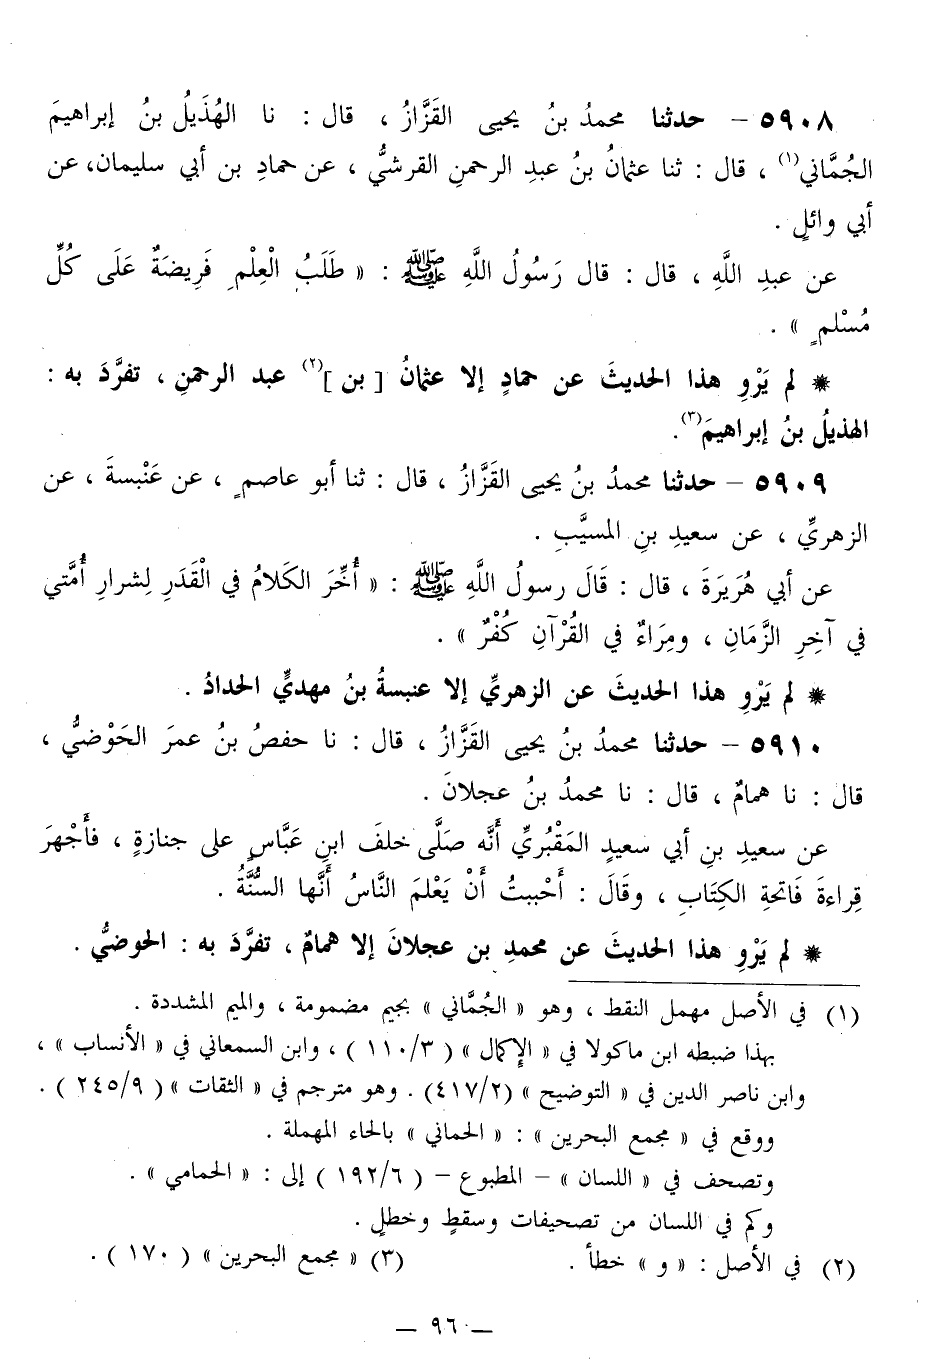 ٥٩٠٨ - حدثنا محمدُ بنُ يحيى القَزَّازُ ، قال : نا الهُذَيلُ بنُ إبراهيمَ
الجُمَّاني(١) ، قال : ثنا عثمانُ بنُ عبدِ الرحمنِ القرشيُّ ، عن حمادِ بن أبي سليمان، عن
أبي وائلٍ .
عن عبدِ اللَّهِ ، قال : قال رَسُولُ اللَّهِ ﷺ : « طَلَبُ الْعِلْمِ فَرِيضَةٌ عَلَى كُلِّ
مُسْلمٍ » .
* لم يَرْوِ هذا الحديثَ عن حمادٍ إلا عثمانُ [ بن ](٢) عبد الرحمنِ ، تفرَّدَ به :
الهذيلُ بنُ إبراهيمَ(٣).
٥٩٠٩ - حدثنا محمدُ بنُ يحيى القَزَّازُ ، قال : ثنا أبو عاصمٍ ، عن عَنْبسةَ ، عن
الزهريِّ ، عن سعيدِ بنِ المسيَّبِ .
عن أبي هُرَيرَةَ ، قال : قَالَ رسولُ اللَّهِ ﷺ : « أُخِّرَ الكَلامُ في الْقَدَرِ لِشرارِ أُمَّتي
في آخِرِ الزَّمَانِ ، ومِرَاءٌ في القُرْآنِ كُفْرٌ » .
* لم يَرْوِ هذا الحديثَ عن الزهريِّ إلا عنبسةُ بنُ مهديٍّ الحدادُ .
٥٩١٠ - حدثنا محمدُ بنُ يحيى القَزَّازُ ، قال : نا حفصُ بنُ عمرَ الحَوْضيُّ ،
قال : نا همامٌ ، قال : نا محمدُ بنُ عجلانَ .
عن سعيدِ بنِ أبي سعيدٍ المَقْبُريِّ أَنَّه صَلَّى خلفَ ابنِ عَبَّاسٍ على جنازةٍ ، فأَجْهرَ
قِراءةَ فَاتحةِ الكِتَابِ ، وقَالَ : أَحْببتُ أَنْ يَعْلمَ النَّاسُ أَنَّها السُّنَّةُ .
* لم يَرْوِ هذا الحديثَ عن محمدِ بن عجلانَ إلا همامٌ ، تفرَّدَ به : الحوضيُّ .
(١) في الأصل مهمل النقط ، وهو « الجُمَّاني » بجيم مضمومة ، والميم المشددة .
بهذا ضبطه ابن ماكولا في « الإكمال » ( ١١٠/٣ ) ، وابن السمعاني في « الأنساب » ،
وابن ناصر الدين في « التوضيح » (٤١٧/٢) . وهو مترجم في « الثقات » ( ٢٤٥/٩ ) .
ووقع في « مجمع البحرين » : « الحماني » بالحاء المهملة .
وتصحف في « اللسان » - المطبوع - ( ١٩٢/٦ ) إلى : « الحمامي » .
وكم في اللسان من تصحيفات وسقطٍ وخطلٍ .
(٢) في الأصل : « و » خطأ . (٣) « مجمع البحرين » ( ١٧٠ ) .
— ٩٦ —